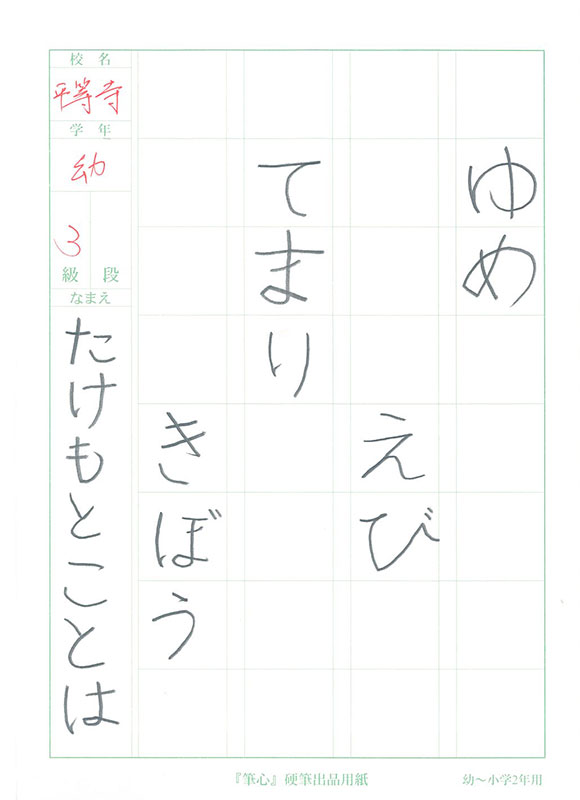 ゆめ
えび
てまり
きぼう
校名
平等寺
学年
幼
3
級 段
なまえ
たけもとことは
『筆心』硬筆出品用紙
幼～小学2年用